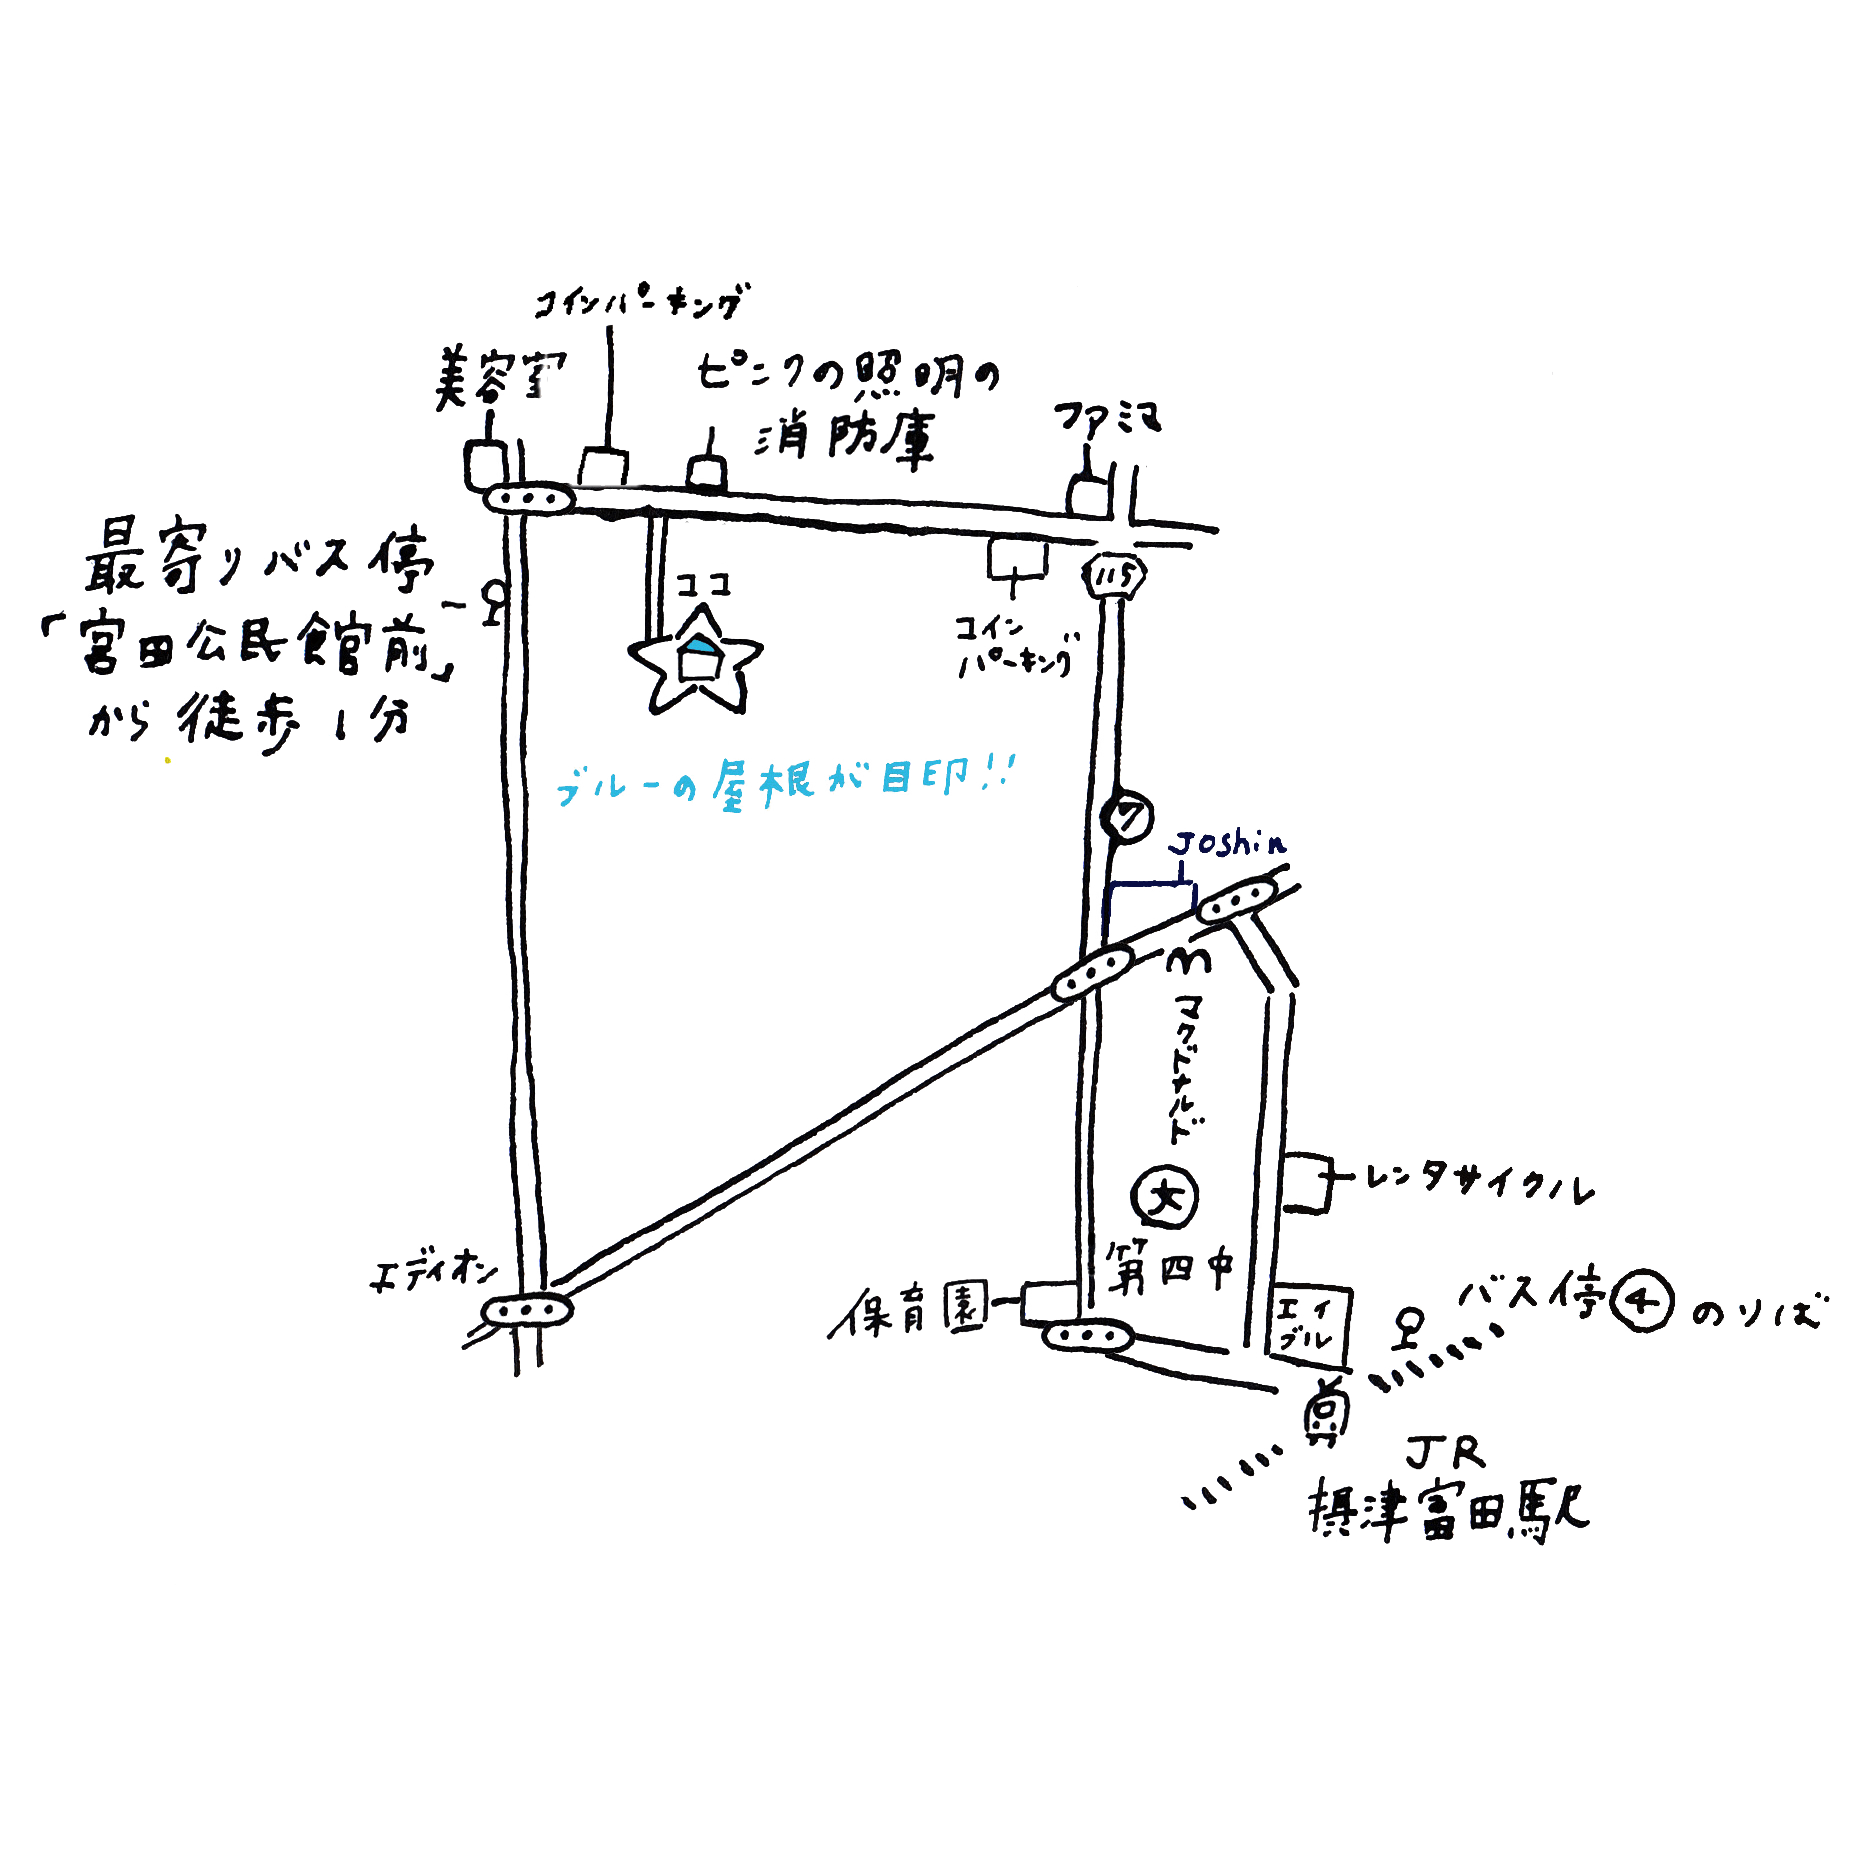 コインパーキング
美容室
ピンクの照明の
消防庫
ファミマ
最寄りバス停
「宮田公民館前」
から徒歩1分
ココ
115
コイン
パーキング
ブルーの屋根が目印!!
7
Joshin
m
マクドナルド
文
第四中
レンタサイクル
エディオン
保育園
エイ
ブル
バス停④のりば
JR
摂津富田駅